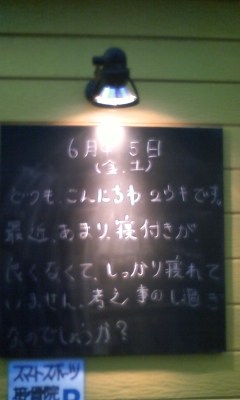 6月4 5日
(金.土)
どうも、こんにちわ ユウキです。
最近、あまり、寝付きが
良くなくて、しっかり寝れて
いません。考え事のし過ぎ
なのでしょうか?
スマートスポーツ
整骨院 P